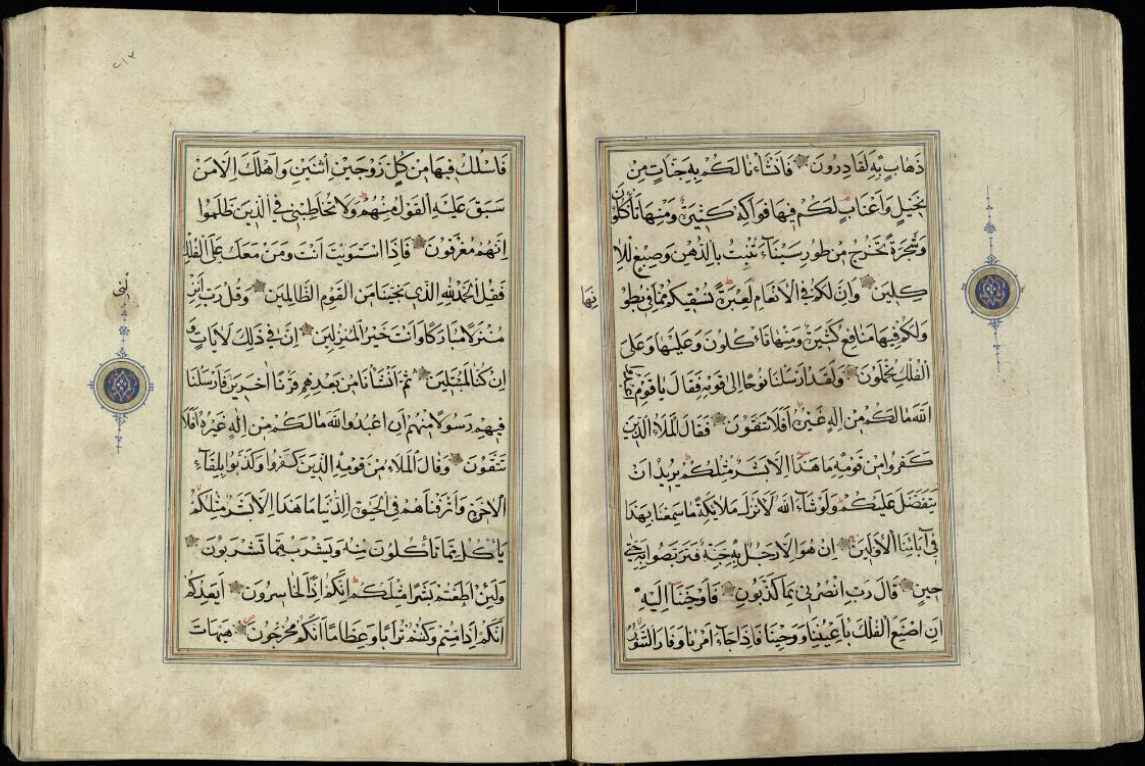 ذَهَابٍ بِهِ لَقَادِرُونَ فَاَنْشَأْنَا لَكُمْ بِهِ جَنَّاتٍ مِنْ
نَخِيلٍ وَاَعْنَابٍ لَكُمْ فِيهَا فَوَاكِهُ كَثِيرَةٌ وَمِنْهَا تَأْكُلُونَ
وَشَجَرَةً تَخْرُجُ مِنْ طُورِ سَيْنَاءَ تَنْبُتُ بِالدُّهْنِ وَصِبْغٍ لِلْاٰ
كِلِينَ وَاِنَّ لَكُمْ فِي الْاَنْعَامِ لَعِبْرَةً نُسْقِيكُمْ مِمَّا فِي بُطُو
نِهَا
وَلَكُمْ فِيهَا مَنَافِعُ كَثِيرَةٌ وَمِنْهَا تَأْكُلُونَ وَعَلَيْهَا وَعَلَى
الْفُلْكِ تُحْمَلُونَ وَلَقَدْ اَرْسَلْنَا نُوحًا اِلَى قَوْمِهِ فَقَالَ يَا قَوْمِ اعْبُدُوا
اللهَ مَا لَكُمْ مِنْ اِلَهٍ غَيْرُهُ اَفَلَا تَتَّقُونَ فَقَالَ الْمَلَأُ الَّذِينَ
كَفَرُوا مِنْ قَوْمِهِ مَا هَذَا اِلَّا بَشَرٌ مِثْلُكُمْ يُرِيدُ اَنْ
يَتَفَضَّلَ عَلَيْكُمْ وَلَوْ شَاءَ اللهُ لَاَنْزَلَ مَلَائِكَةً مَا سَمِعْنَا بِهَذَا
فِي آبَائِنَا الْاَوَّلِينَ اِنْ هُوَ اِلَّا رَجُلٌ بِهِ جِنَّةٌ فَتَرَبَّصُوا بِهِ حَتَّى
حِينٍ قَالَ رَبِّ انْصُرْنِي بِمَا كَذَّبُونِ فَاَوْحَيْنَا اِلَيْهِ
اَنِ اصْنَعِ الْفُلْكَ بِاَعْيُنِنَا وَوَحْيِنَا فَاِذَا جَاءَ اَمْرُنَا وَفَارَ التَّنُّورُ
فَاسْلُكْ فِيهَا مِنْ كُلٍّ زَوْجَيْنِ اثْنَيْنِ وَاَهْلَكَ اِلَّا مَنْ
سَبَقَ عَلَيْهِ الْقَوْلُ مِنْهُمْ وَلَا تُخَاطِبْنِي فِي الَّذِينَ ظَلَمُوا
اِنَّهُمْ مُغْرَقُونَ فَاِذَا اسْتَوَيْتَ اَنْتَ وَمَنْ مَعَكَ عَلَى الْفُلْكِ
فَقُلِ الْحَمْدُ لِلهِ الَّذِي نَجَّيْنَا مِنَ الْقَوْمِ الظَّالِمِينَ وَقُلْ رَبِّ اَنْزِ
لْنِي
مُنْزَلًا مُبَارَكًا وَاَنْتَ خَيْرُ الْمُنْزِلِينَ اِنَّ فِي ذَلِكَ لَاٰيَاتٍ وَ
اِنْ كُنَّا لَمُبْتَلِينَ ثُمَّ اَنْشَأْنَا مِنْ بَعْدِهِمْ قَرْنًا اٰخَرِينَ فَاَرْسَلْنَا
فِيهِمْ رَسُولًا مِنْهُمْ اَنِ اعْبُدُوا اللهَ مَا لَكُمْ مِنْ اِلَهٍ غَيْرُهُ اَفَلَا
تَتَّقُونَ وَقَالَ الْمَلَأُ مِنْ قَوْمِهِ الَّذِينَ كَفَرُوا وَكَذَّبُوا بِلِقَاءِ
الْاٰخِرَةِ وَاَتْرَفْنَاهُمْ فِي الْحَيٰوةِ الدُّنْيَا مَا هَذَا اِلَّا بَشَرٌ مِثْلُكُمْ
يَأْكُلُ مِمَّا تَأْكُلُونَ مِنْهُ وَيَشْرَبُ مِمَّا تَشْرَبُونَ
وَلَئِنْ اَطَعْتُمْ بَشَرًا مِثْلَكُمْ اِنَّكُمْ اِذًا لَخَاسِرُونَ اَيَعِدُكُمْ
اَنَّكُمْ اِذَا مِتُّمْ وَكُنْتُمْ تُرَابًا وَعِظَامًا اَنَّكُمْ مُخْرَجُونَ هَيْهَاتَ